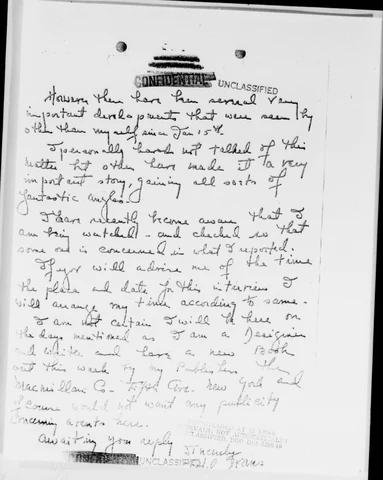 CONFIDENTIAL UNCLASSIFIED
However there have been several very
important developments that were seen by
other than myself since Jan 15th
I personally have not talked of this
matter but others have made it a very
important story, gaining all sorts of
fantastic angles.
I have recently become aware that I
am being watched - and checked so that
some one is concerned in what I reported.
If you will advise me of the time
the place and date for this interview I
will arrange my time according to same.
I am not certain I will be here on
the days mentioned as I am a Designer
and writer and have a new Book
out this week by my Publishers The
Macmillan Co - Ave. New York and
of course would not want any publicity
concerning events here.
Awaiting your reply Sincerely
UNCLASSIFIED